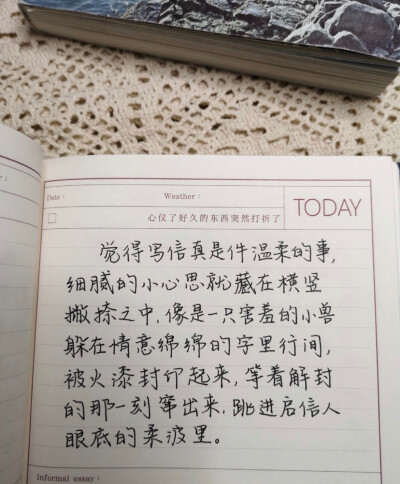 Date: Weather:
心仪了好久的东西突然打折了
TODAY
觉得写信真是件温柔的事,
细腻的小心思就藏在横竖
撇捺之中,像是一只害羞的小兽
躲在情意绵绵的字里行间,
被火漆封印起来,等着解封
的那一刻窜出来,跳进启信人
眼底的柔波里。
Informal essay: